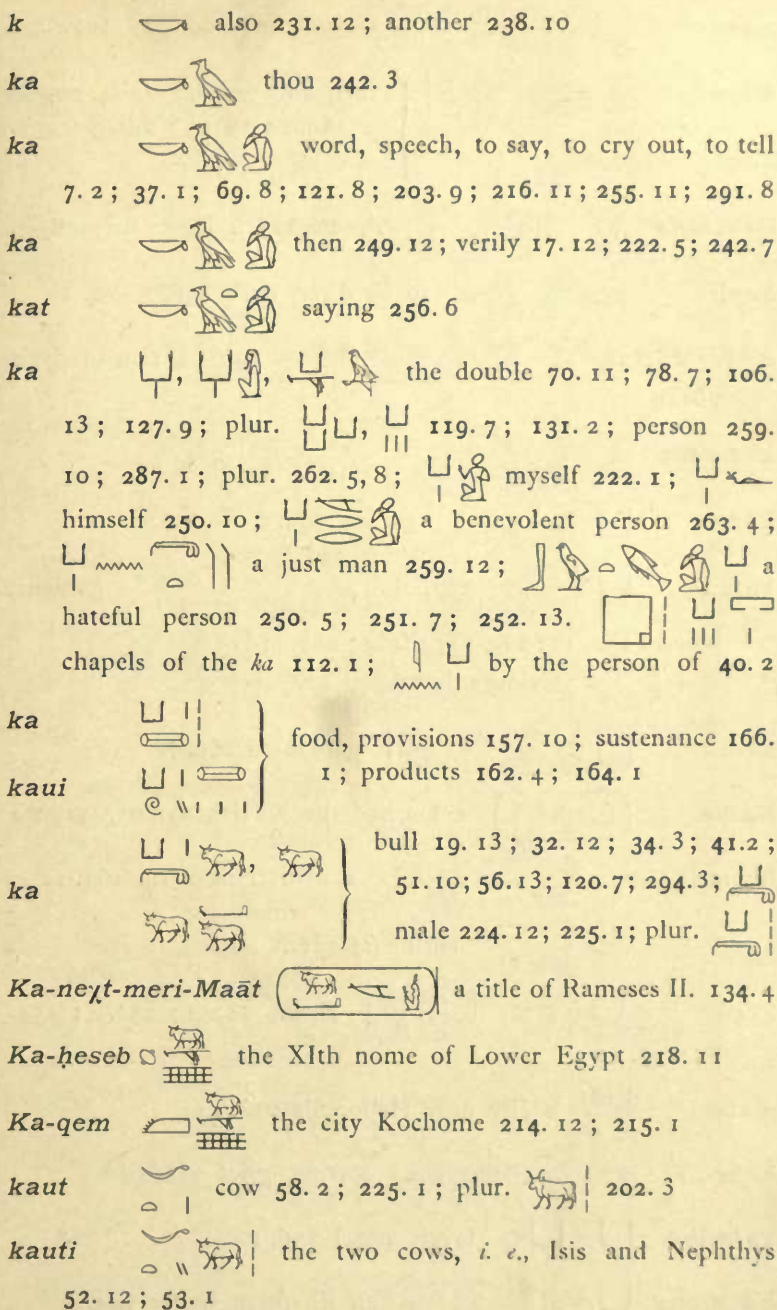 k also 231. 12 ; another 238. 10
ka thou 242. 3
ka word, speech, to say, to cry out, to tell
7. 2 ; 37. 1 ; 69. 8 ; 121. 8 ; 203. 9 ; 216. 11 ; 255. 11 ; 291. 8
ka then 249. 12 ; verily 17. 12 ; 222. 5 ; 242. 7
kat saying 256. 6
ka the double 70. 11 ; 78. 7 ; 106.
13 ; 127. 9 ; plur. 119. 7 ; 131. 2 ; person 259.
10 ; 287. 1 ; plur. 262. 5, 8 ; myself 222. 1 ;
himself 250. 10 ; a benevolent person 263. 4 ;
a just man 259. 12 ; a
hateful person 250. 5 ; 251. 7 ; 252. 13.
chapels of the ka 112. 1 ; by the person of 40. 2
ka
food, provisions 157. 10 ; sustenance 166.
kaui 1 ; products 162. 4 ; 164. 1
bull 19. 13 ; 32. 12 ; 34. 3 ; 41. 2 ;
ka 51. 10 ; 56. 13 ; 120. 7 ; 294. 3 ;
male 224. 12 ; 225. 1 ; plur.
Ka-neχt-meri-Maāt a title of Rameses II. 134. 4
Ka-ḥeseb the XIth nome of Lower Egypt 218. 11
Ka-qem the city Kochome 214. 12 ; 215. 1
kaut cow 58. 2 ; 225. 1 ; plur. 202. 3
kauti the two cows, i. e., Isis and Nephthys
52. 12 ; 53. 1